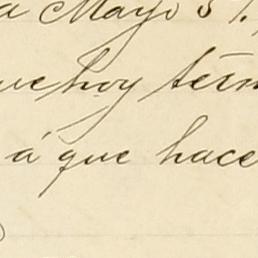 a Mayo 31.
que hoy térm
á que hace